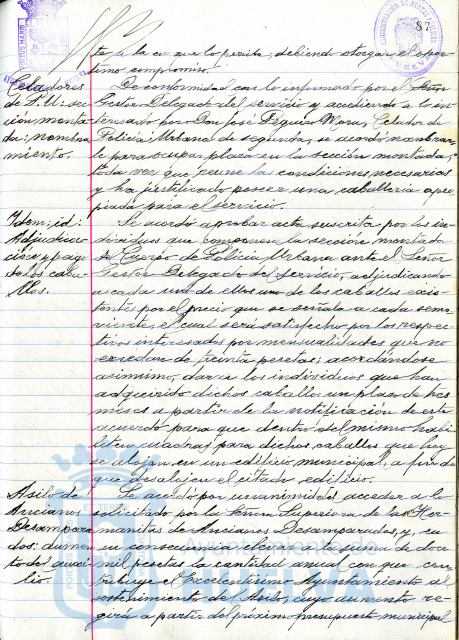 87
te a la en que lo perita, debiendo otorgar el opor-
tuno compromiso.
Celadores
de P.U: sec-
ción monta-
da: nombra-
miento.
De conformidad con lo informado por el Señor
Gestor Delegado del servicio y accediendo a lo in-
teresado por Don José Mora, Celador de
Policía Urbana de segunda, se acordó nombrar-
le para ocupar plaza en la sección montada,
toda vez que reune las condiciones necesarias
y ha justificado poseer una caballería apro-
piada para el servicio.
Idem; id:
Adjudica-
ción y pago
de los caba-
llos.
Se acordó aprobar acta suscrita por los in-
dividuos que componen la sección montada
del Cuerpo de Policía Urbana ante el Señor
Gestor Delegado del servicio, adjudicando
a cada uno de ellos uno de los caballos exis-
tentes por el precio que se señala a cada semo-
viente, el cual será satisfecho por los respec-
tivos interesados por mensualidades que no
excedan de treinta pesetas; acordándose
asimismo, dar a los individuos que han
adquirido dichos caballos un plazo de tres
meses a partir de la notificación de este
acuerdo para que dentro del mismo habi-
liten cuadras para dichos caballos que hoy
se alojan en un edificio municipal, a fin de
que desalojen el citado edificio.
Asilo de
Ancianos
Desampara-
dos: aumen-
to del auxi-
lio.
Se acordó por unanimidad acceder a lo
solicitado por la Señora Superiora de las Her-
manitas de Ancianos Desamparados, y, en
su consecuencia, elevar a la suma de doce
mil pesetas la cantidad anual con que con-
tribuye el Excelentísimo Ayuntamiento al
sostenimiento del Asilo, cuyo aumento re-
girá a partir del próximo presupuesto municipal
Ayuntamiento de